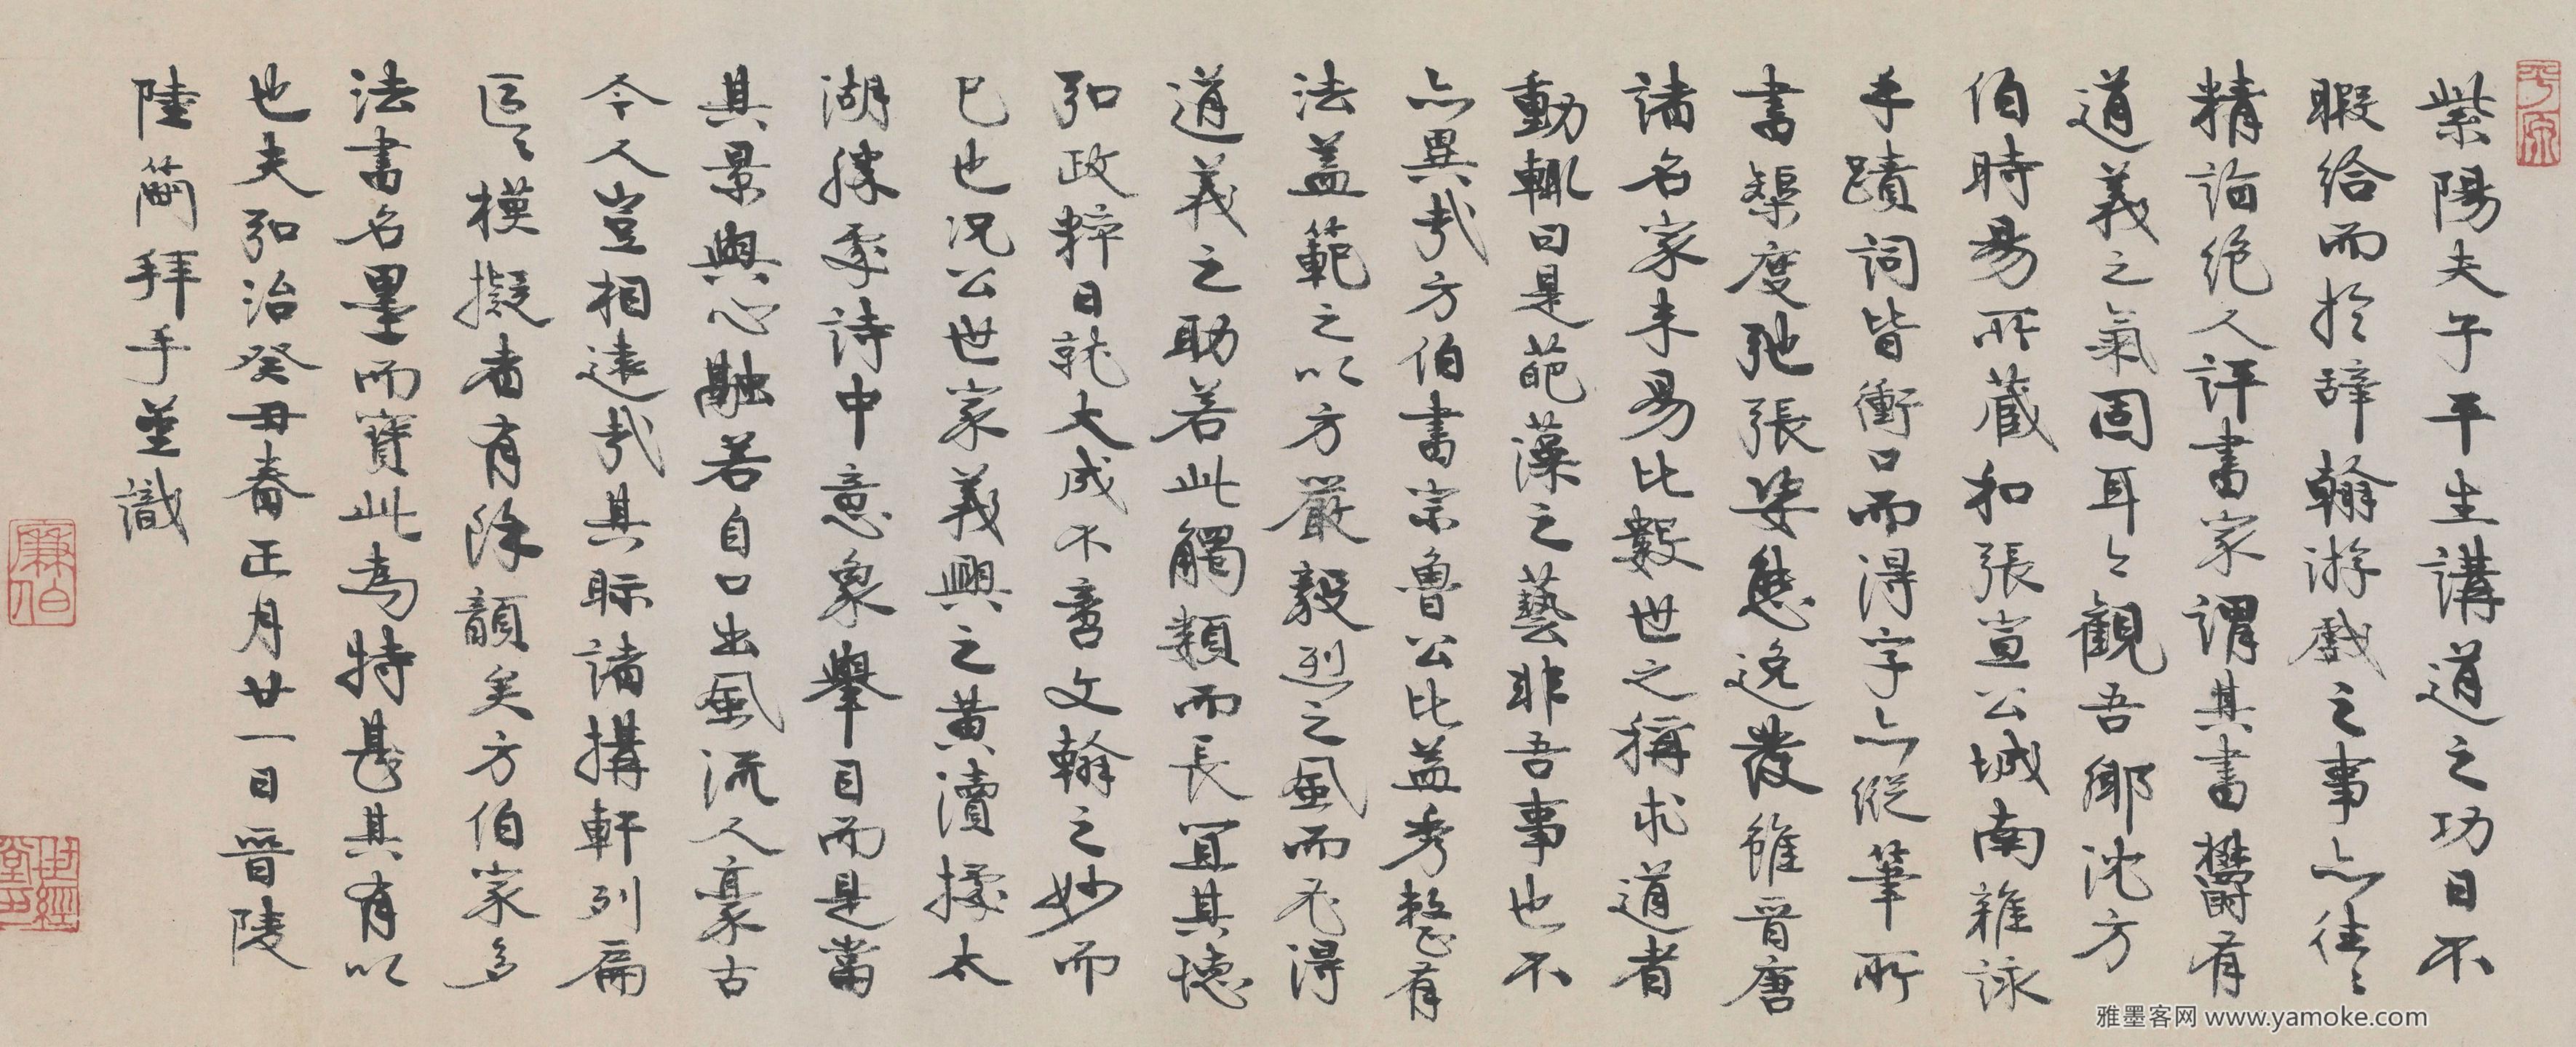 平原
紫陽夫子平生講道之功日不
暇給而於辞翰游戲之事亦往〻
精詣绝人評書家謂其書欝有
道義之氣固耳〻觀吾鄉沈方
伯時昜所蔵和張宣公城南雜詠
手蹟詞皆衝口而得字亦縱筆所
書榘度弛張姿態逸發雖晋唐
諸名家未易比數世之稱求道者
動輒曰是葩藻之藝非吾事也不
亦異哉方伯書宗魯公比益秀整有
法盖範之以方嚴毅烈之風而充得
道義之助若此觸類而長宜其德
弘政粹日就大成不啻文翰之妙而
已也况公世家義興之黄瀆據太
湖勝處詩中意象舉目而是當
其景與心融若自口出風流人豪古
今人豈相遠哉其眎諸搆軒列扁
區〻模擬者有除顏矣方伯家多
法書名墨而寶此為特甚其有以
也夫弘治癸丑春正月廿一日晋陵
陸簡拜手謹識
廉伯
世經堂印
雅墨客网 www.yamoke.com